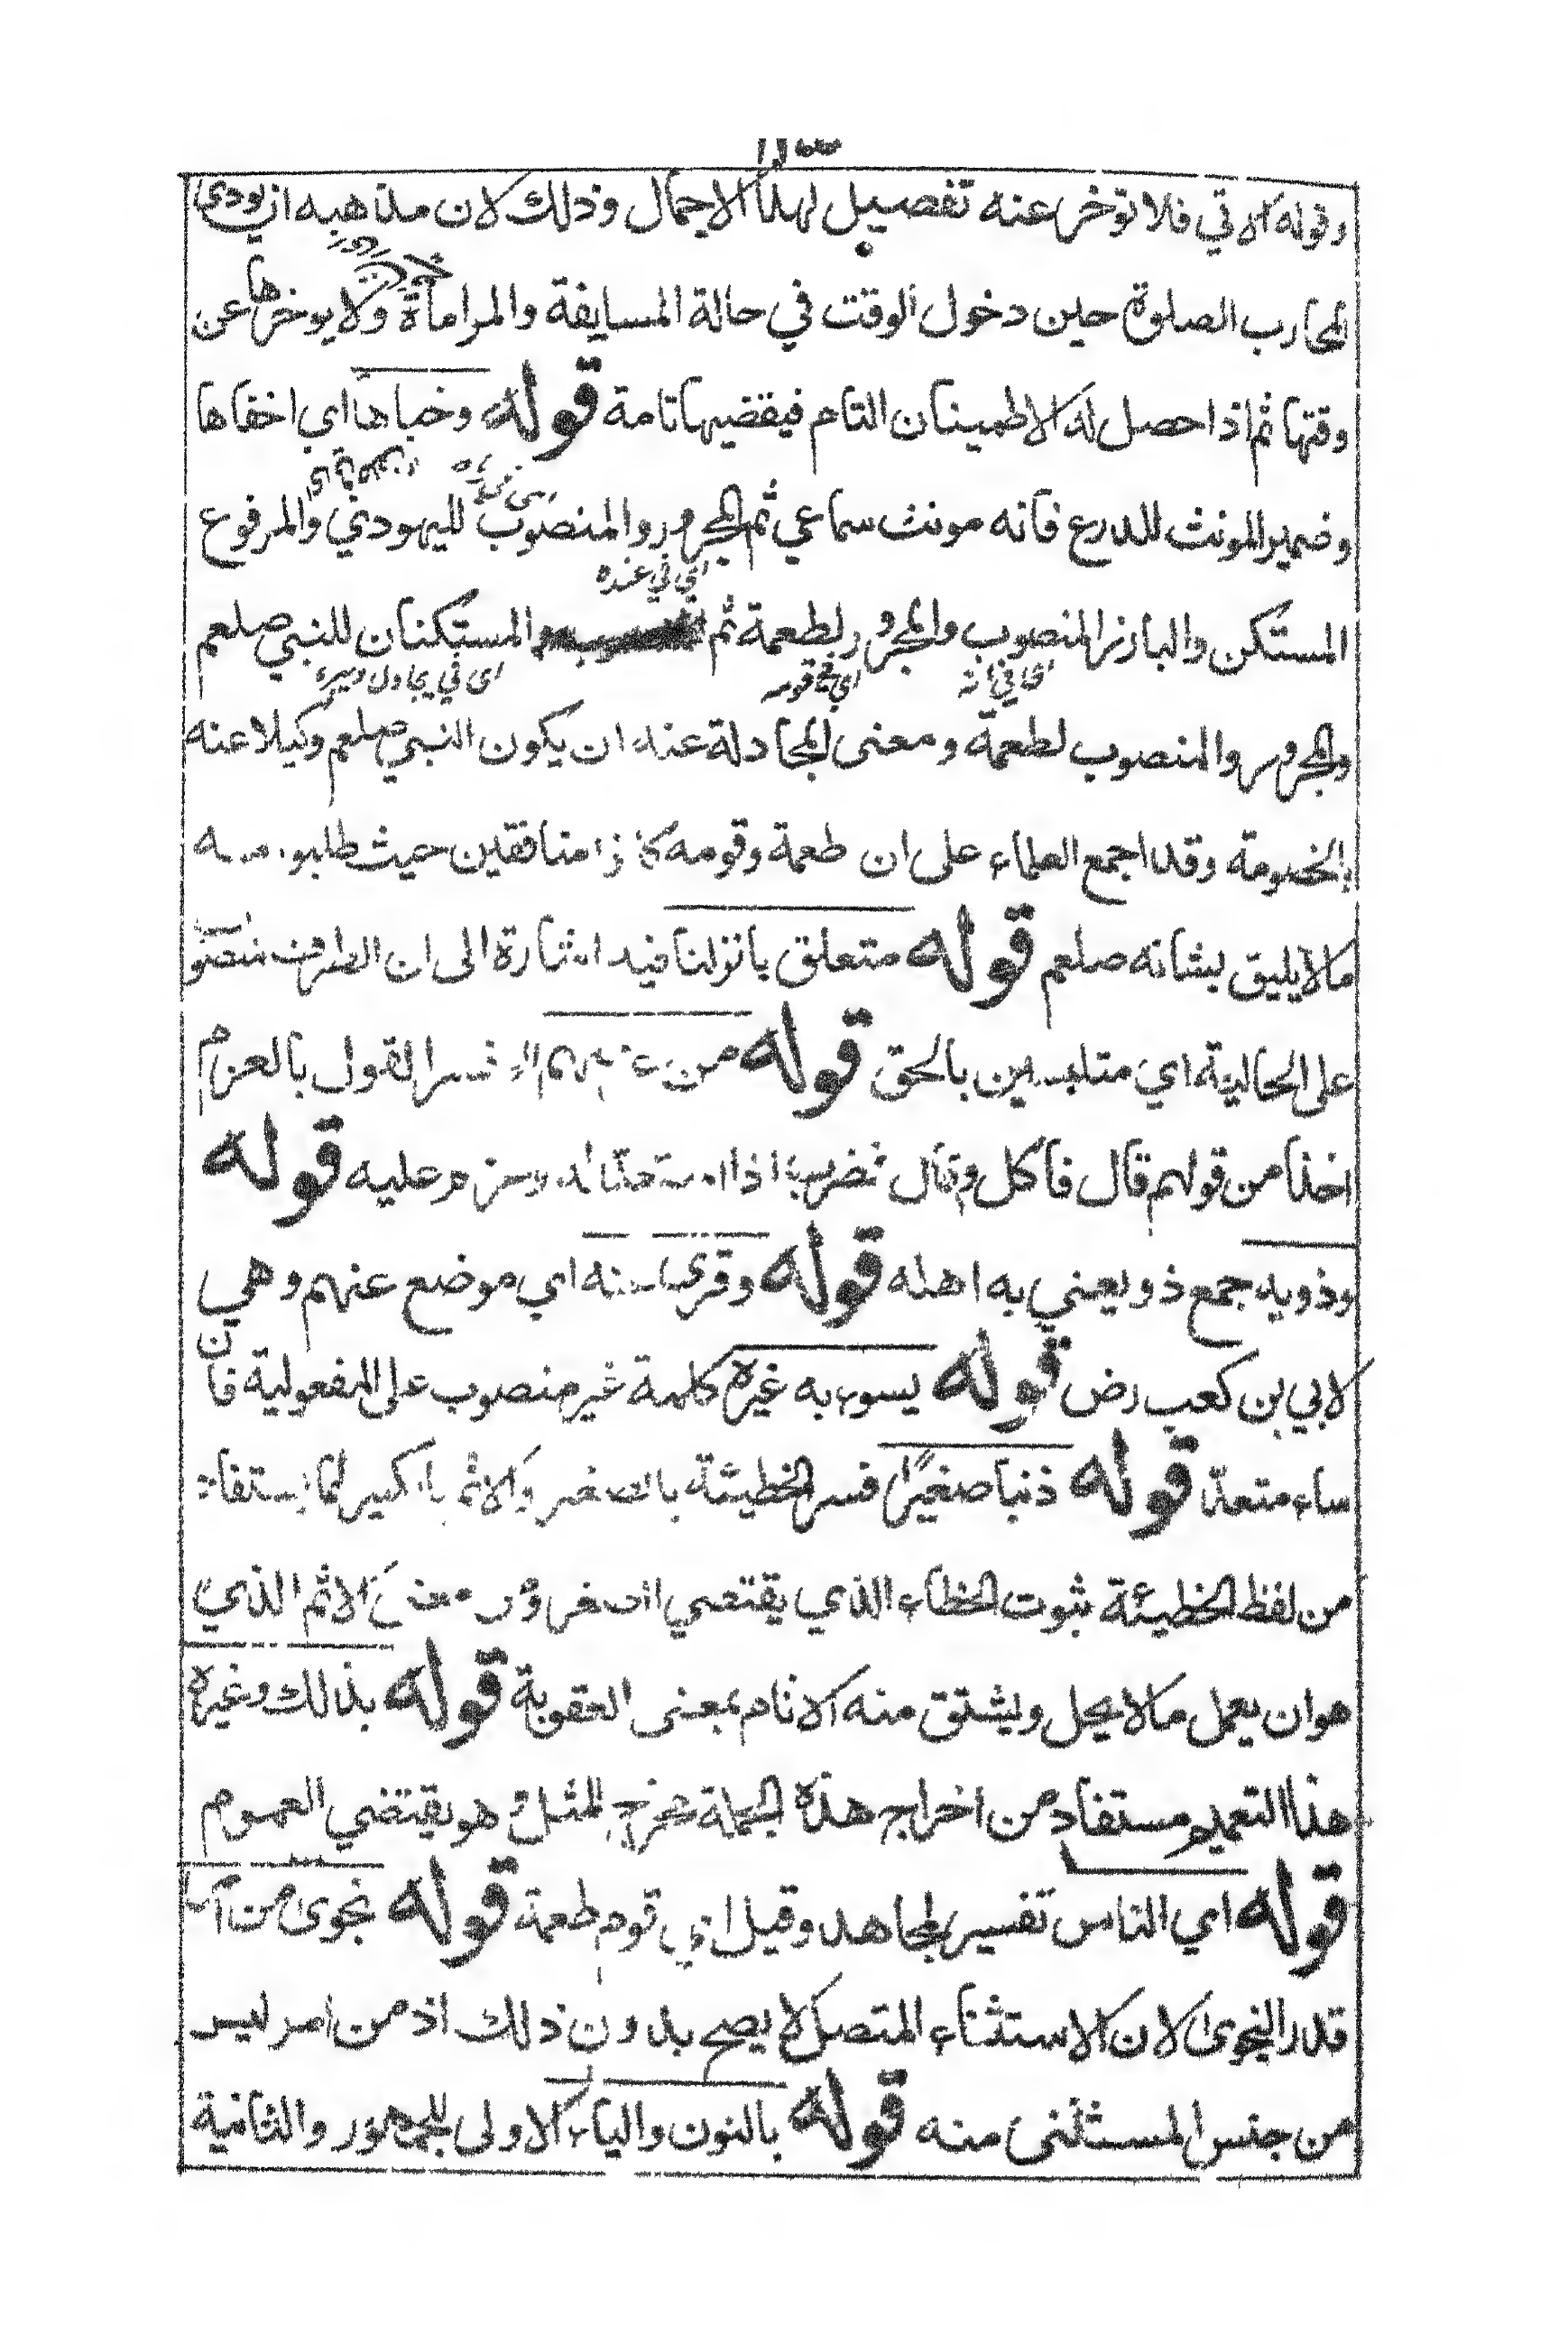 وقوله الاتي فلا توخر عنه تفصيل لهذا الاجمال وذلك لان مذهبه ان يودي
المحارب الصلوة حين دخول الوقت في حالة المسايفة والمراماة ولا يوخرها عن
وقتها ثم اذا حصل له الاطمينان التام فيقضيها تامة قوله وخباها اي اخفاها
وضمير المونث للدرع فانه مونث سماعي ثم المجرور والمنصوب لليهودي والمرفوع
اي في عنده
المستكن والبارز المنصوب والمجرور لطعمة ثم والمستكنان للنبي صلعم
اي في قومه اي في يجادل وغيره
والمجرور والمنصوب لطعمة ومعنى المجادلة عنه ان يكون النبي صلعم وكيلا عنه
والخصومة وقد اجمع العلماء على ان طعمة وقومه كانوا منافقين حيث طلبوا منه
ما لا يليق بشانه صلعم قوله متعلق بانزلنا فيه اشارة الى ان الظرف منصوب
على الحالية اي متلبسين بالحق قوله من فسر القول بالعزم
اخذا من قولهم قال فاكل وقال فضرب اذا عليه قوله
وذويه جمع ذو يعني به اهله قوله وقرئ عنه اي موضع عنهم وهي
لابي بن كعب رض قوله يسوء به غيره كلمة غير منصوب على المفعولية فان
ساء متعد قوله ذنبا صغيرا فسر الخطيئة بالصغير والاثم بالكبير لما يستفاد
من لفظ الخطيئة ثبوت الخطاء الذي يقتضي الصغر ومن معنى الاثم الذي
هو ان يعمل ما لا يحل ويشتق منه الاثام بمعنى العقوبة قوله بذلك وغيره
هذا التعميم مستفاد من اخراج هذه الجملة مخرج المثل وهو يقتضي العموم
قوله اي الناس تفسير لمجاهد وقيل اي قوم طعمة قوله نجوى من
قدر النجوى لان الاستثناء المتصل لا يصح بدون ذلك اذ من امر ليس
من جنس المستثنى منه قوله بالنون والياء الاولى للجمهور والثانية